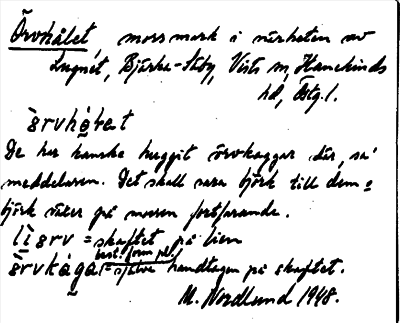 Örvhålet, mossmark i närheten av
Lugnet, Bjärka-Säby, Vists sn, Hanekinds
hd, Östg. l.
ö̀rvhå̀ḷet
De har kanske huggit örvkaggar där, sa'
meddelaren. Det skall vara björk till dem,
björk växer på mossen fortfarande.
lìörv = skaftet på lien
best. form pl.
ö̀rvkàga = själva handtagen på skaftet.
M. Nordlund 1948.